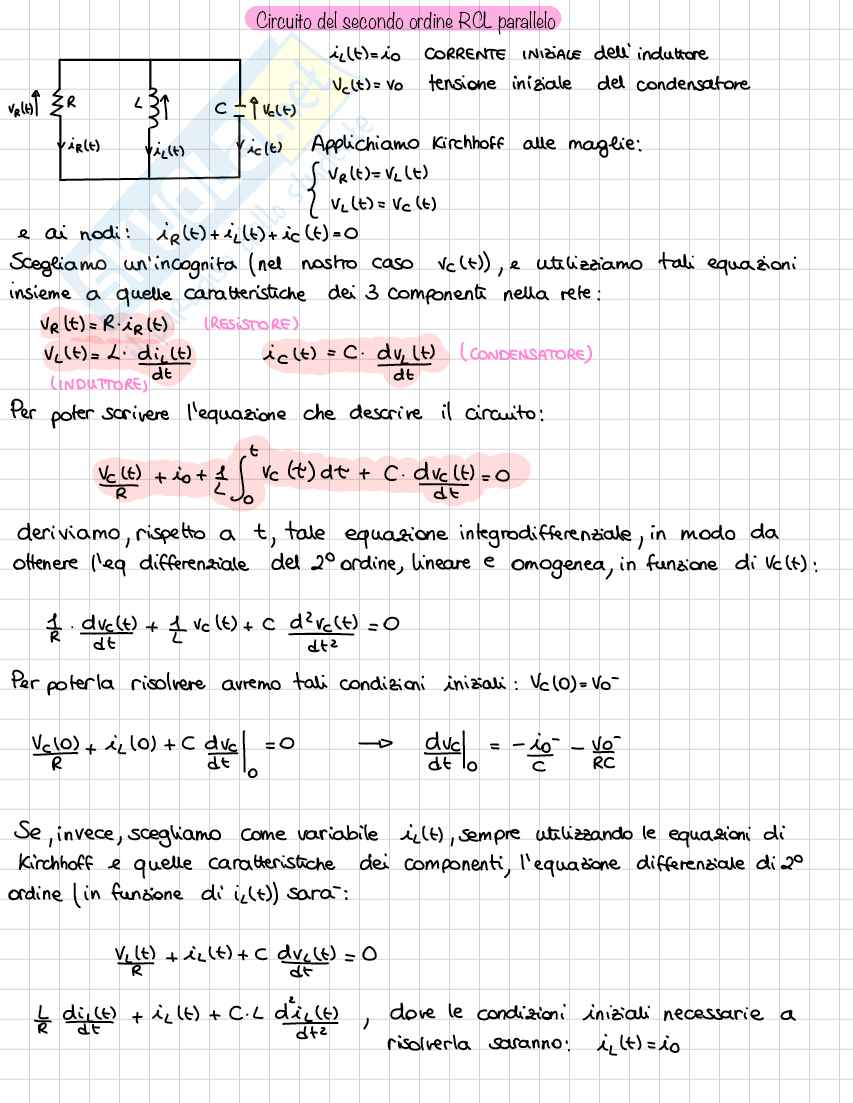 Circuito del secondo ordine RCL parallelo
iL(t)=i0 CORRENTE INIZIALE dell'induttore
Vc(t)=v0 tensione iniziale del condensatore
vR(t) R L C vc(t)
iR(t) iL(t) ic(t)
Applichiamo Kirchhoff alle maglie:
{ vR(t)=vL(t)
vL(t)=vc(t)
e ai nodi: iR(t)+iL(t)+ic(t)=0
Scegliamo un'incognita (nel nostro caso vc(t)), e utilizziamo tali equazioni
insieme a quelle caratteristiche dei 3 componenti nella rete:
vR(t)=R·iR(t) (RESISTORE)
vL(t)=L· diL(t)/dt ic(t) = C· dvL(t)/dt (CONDENSATORE)
(INDUTTORE)
Per poter scrivere l'equazione che descrive il circuito:
vc(t)/R + i0 + 1/L ∫0^t vc(t)dt + C· dvc(t)/dt = 0
deriviamo, rispetto a t, tale equazione integrodifferenziale, in modo da
ottenere l'eq differenziale del 2º ordine, lineare e omogenea, in funzione di Vc(t):
1/R · dvc(t)/dt + 1/L vc(t) + C d²vc(t)/dt² = 0
Per poterla risolvere avremo tali condizioni iniziali: Vc(0)=V0⁻
Vc(0)/R + iL(0) + C dvc/dt|0 = 0 → dvc/dt|0 = -i0⁻/C - V0⁻/RC
Se, invece, scegliamo come variabile iL(t), sempre utilizzando le equazioni di
Kirchhoff e quelle caratteristiche dei componenti, l'equazione differenziale di 2º
ordine (in funzione di iL(t)) sarà:
VL(t)/R + iL(t) + C dvL(t)/dt = 0
L/R diL(t)/dt + iL(t) + C·L d²iL(t)/dt² , dove le condizioni iniziali necessarie a
risolverla saranno: iL(t)=i0